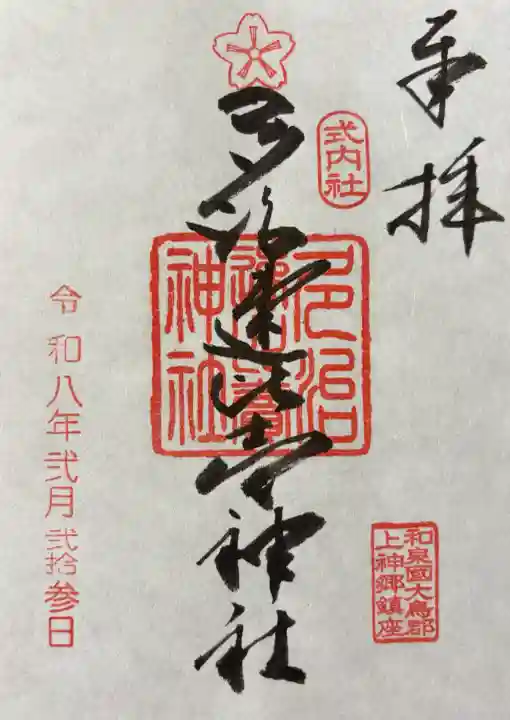 奉拝
式内社
多治速比売神社
多治
速比賣
神社
和泉國大鳥郡
上神郷鎮座
令和八年弐月弐拾参日